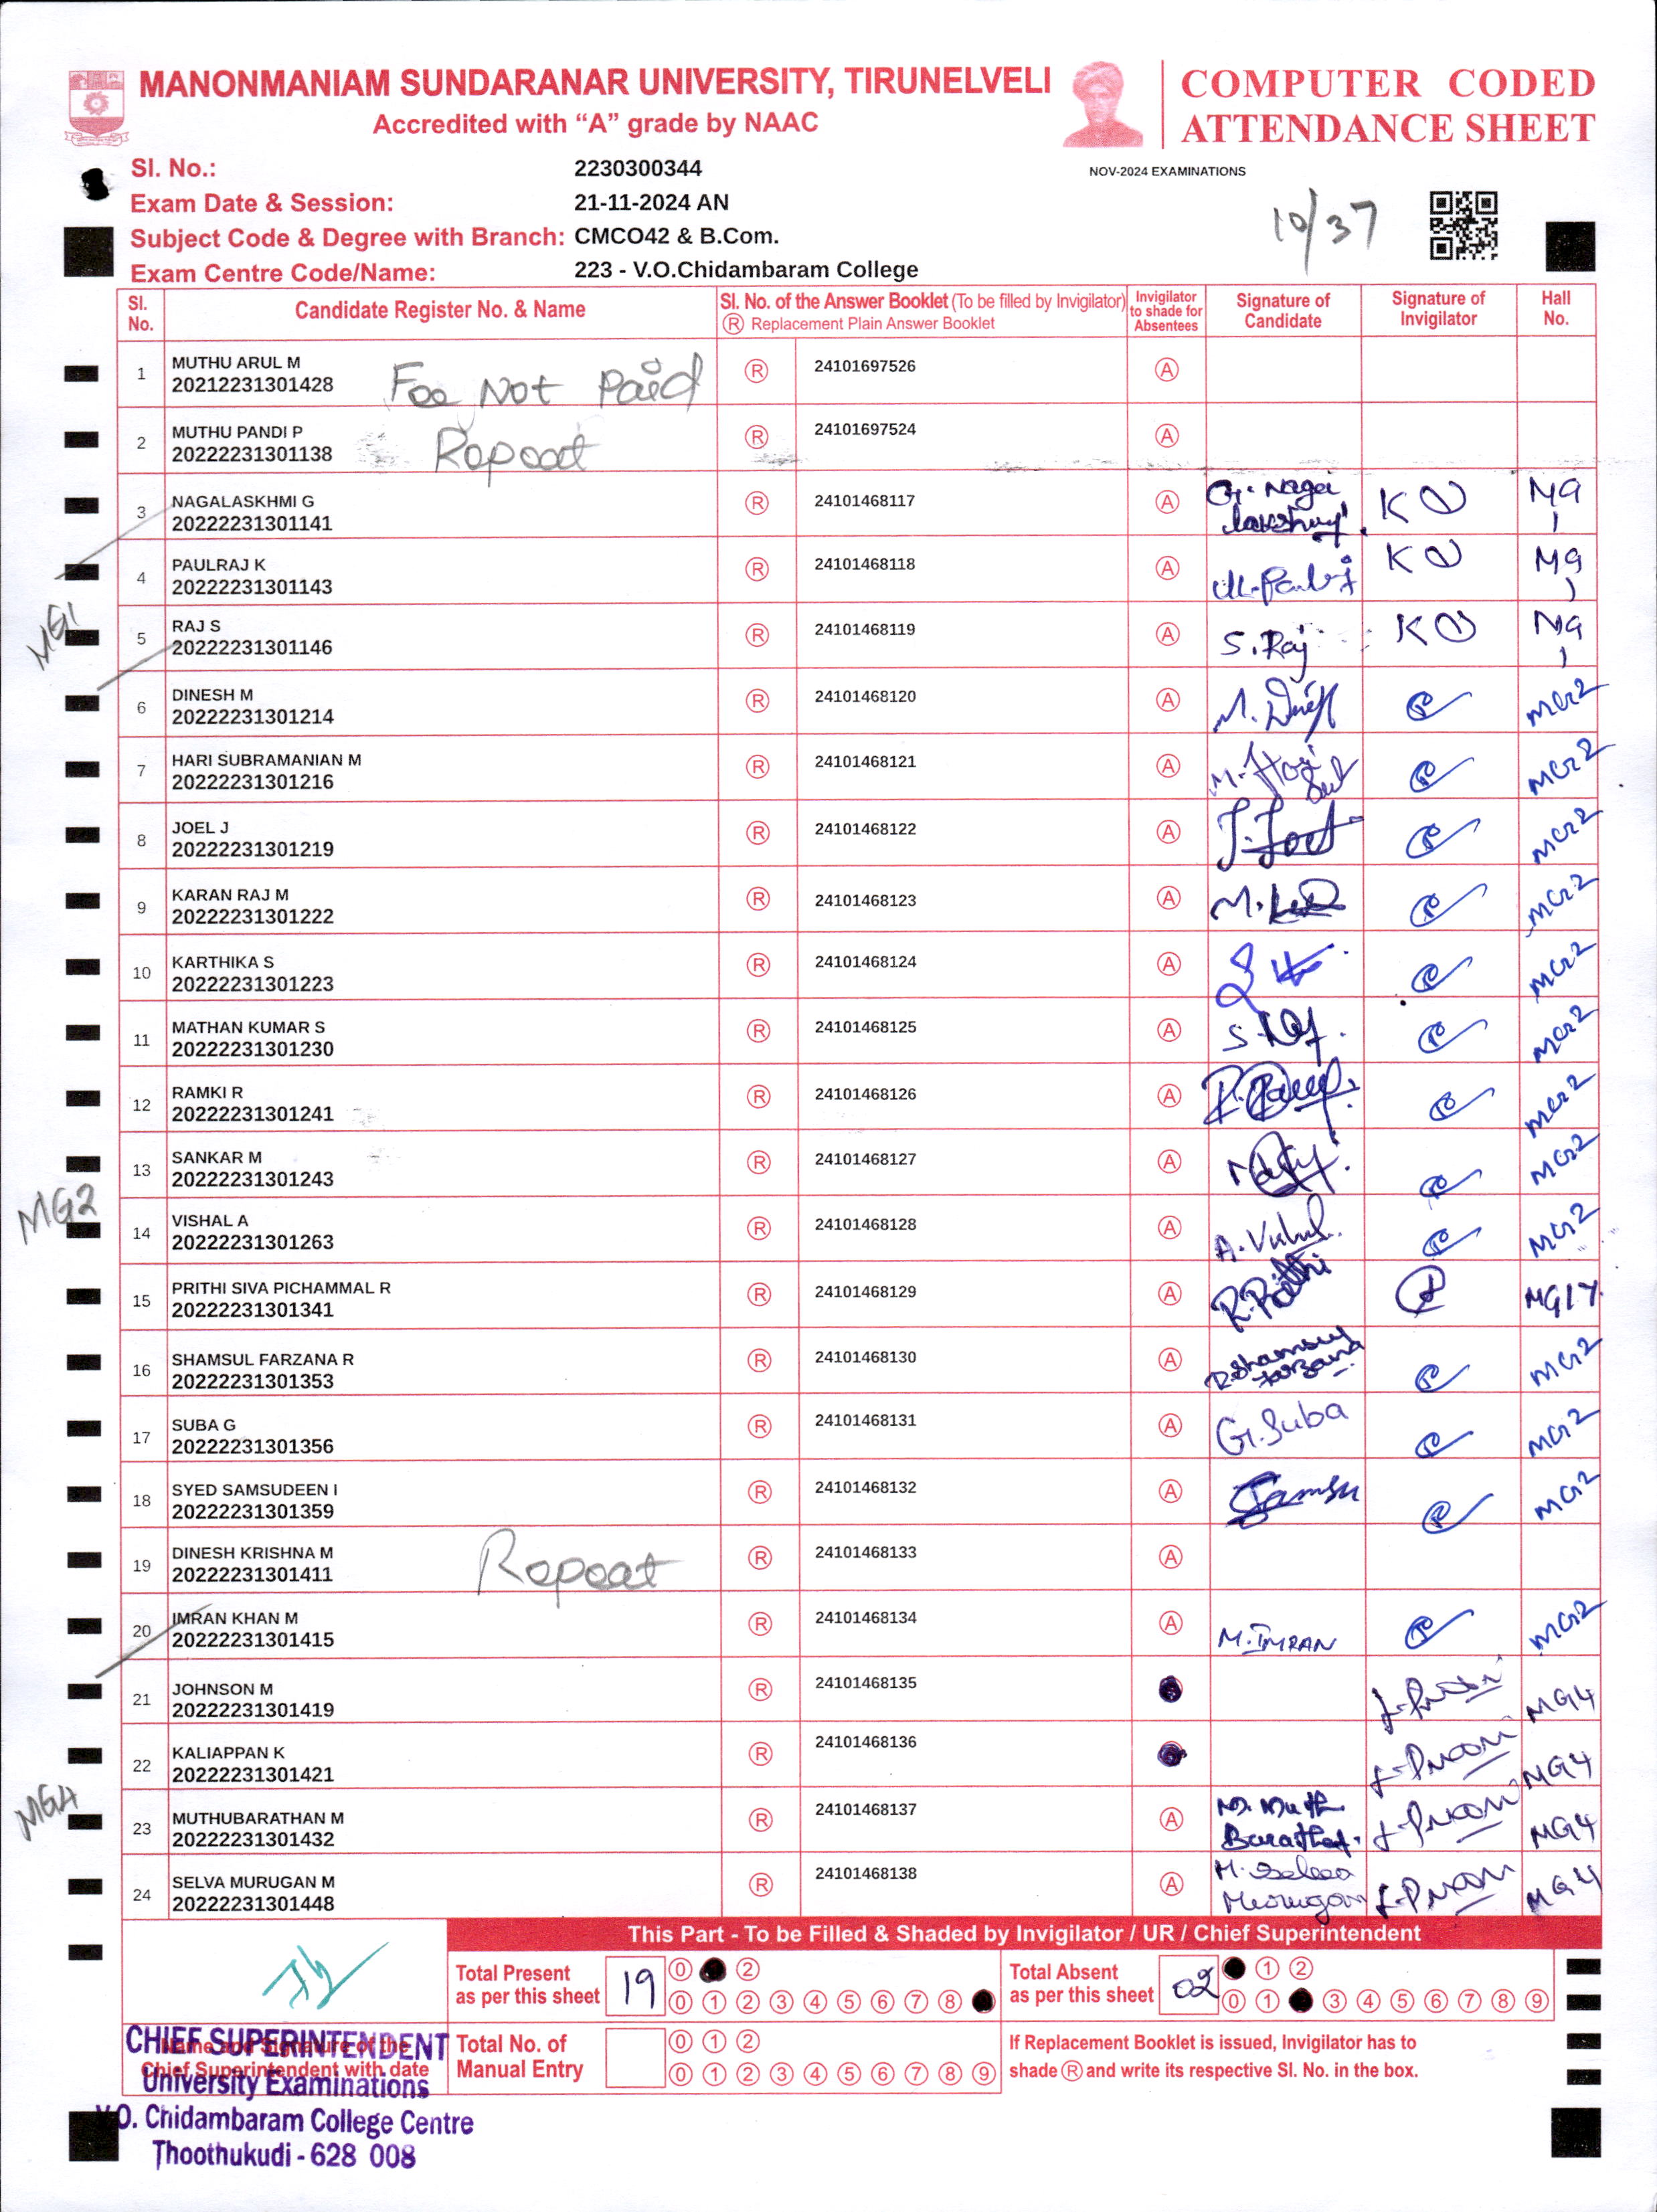 MANONMANIAM SUNDARANAR UNIVERSITY, TIRUNELVELI
Accredited with “A” grade by NAAC
COMPUTER CODED
ATTENDANCE SHEET
Sl. No.: 2230300344
NOV-2024 EXAMINATIONS
Exam Date & Session: 21-11-2024 AN
10/37
Subject Code & Degree with Branch: CMCO42 & B.Com.
Exam Centre Code/Name: 223 - V.O.Chidambaram College
Sl. No. Candidate Register No. & Name Sl. No. of the Answer Booklet (To be filled by Invigilator) Ⓡ Replacement Plain Answer Booklet Invigilator to shade for Absentees Signature of Candidate Signature of Invigilator Hall No.
1 MUTHU ARUL M Ⓡ 24101697526 Ⓐ
20212231301428 Fee Not Paid
2 MUTHU PANDI P Ⓡ 24101697524 Ⓐ
20222231301138 Repeat
3 NAGALASKHMI G Ⓡ 24101468117 Ⓐ G. Naga lakshmi KN MG 1
20222231301141
4 PAULRAJ K Ⓡ 24101468118 Ⓐ KN MG 1
20222231301143
MG1
5 RAJ S Ⓡ 24101468119 Ⓐ S. Raj KN MG 1
20222231301146
6 DINESH M Ⓡ 24101468120 Ⓐ MG2
20222231301214
7 HARI SUBRAMANIAN M Ⓡ 24101468121 Ⓐ MG2
20222231301216
8 JOEL J Ⓡ 24101468122 Ⓐ J. Joel MG2
20222231301219
9 KARAN RAJ M Ⓡ 24101468123 Ⓐ MG2
20222231301222
10 KARTHIKA S Ⓡ 24101468124 Ⓐ MG2
20222231301223
11 MATHAN KUMAR S Ⓡ 24101468125 Ⓐ MG2
20222231301230
12 RAMKI R Ⓡ 24101468126 Ⓐ MG2
20222231301241
13 SANKAR M Ⓡ 24101468127 Ⓐ MG2
20222231301243
MG2
14 VISHAL A Ⓡ 24101468128 Ⓐ A. Vishal MG2
20222231301263
15 PRITHI SIVA PICHAMMAL R Ⓡ 24101468129 Ⓐ R. Prithi MG17
20222231301341
16 SHAMSUL FARZANA R Ⓡ 24101468130 Ⓐ R. Shamsul farzana MG2
20222231301353
17 SUBA G Ⓡ 24101468131 Ⓐ G. Suba MG2
20222231301356
18 SYED SAMSUDEEN I Ⓡ 24101468132 Ⓐ Samsu MG2
20222231301359
19 DINESH KRISHNA M Ⓡ 24101468133 Ⓐ
20222231301411 Repeat
20 IMRAN KHAN M Ⓡ 24101468134 Ⓐ M. IMRAN MG2
20222231301415
21 JOHNSON M Ⓡ 24101468135 MG4
20222231301419
22 KALIAPPAN K Ⓡ 24101468136 MG4
20222231301421
MG4
23 MUTHUBARATHAN M Ⓡ 24101468137 Ⓐ M. Muthu Barathan MG4
20222231301432
24 SELVA MURUGAN M Ⓡ 24101468138 Ⓐ M. Selva Murugan MG4
20222231301448
This Part - To be Filled & Shaded by Invigilator / UR / Chief Superintendent
Total Present as per this sheet 19 0 2
0 1 2 3 4 5 6 7 8
Total Absent as per this sheet 02 1 2
0 1 3 4 5 6 7 8 9
Total No. of Manual Entry 0 1 2
0 1 2 3 4 5 6 7 8 9
If Replacement Booklet is issued, Invigilator has to
shade Ⓡ and write its respective Sl. No. in the box.
Name and Signature of the
Chief Superintendent with date
CHIEF SUPERINTENDENT
University Examinations
V.O. Chidambaram College Centre
Thoothukudi - 628 008